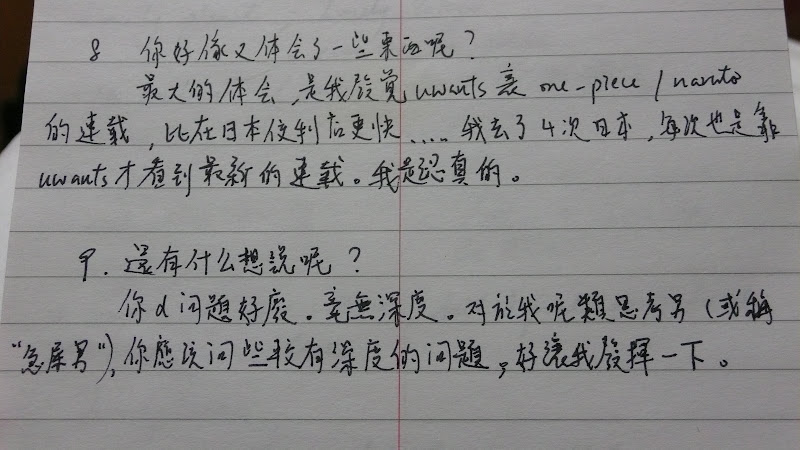 8 你好像又体会了一些東西呢？
最大的体会，是我發覺 uwants 裏 one-piece / naruto
的連載，比在日本便利店更快..... 我去了4次日本，每次也是靠
uwants 才看到最新的連載。我是認真的。
9. 還有什么想說呢？
你d问題好廢。毫無深度。对於我呢類思考男（或稱
“急屎男”），你應該问些較有深度的问題，好讓我發揮一下。